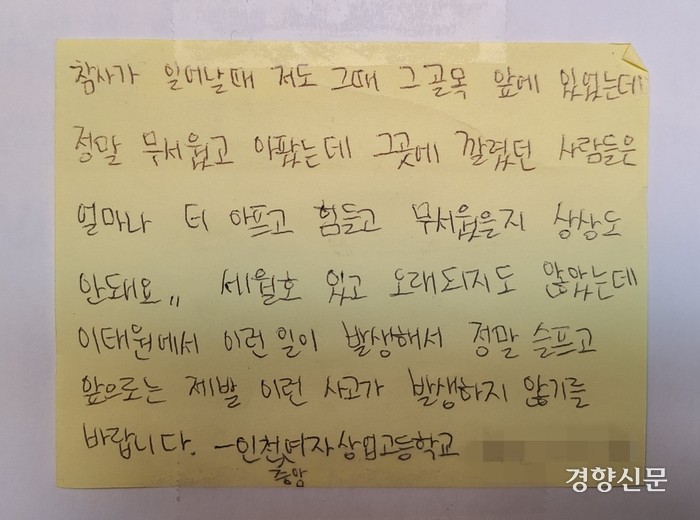 참사가 일어날때 저도 그때 그 골목 앞에 있었는데
정말 무서웠고 아팠는데 그곳에 깔렸던 사람들은
얼마나 더 아프고 힘들고 무서웠을지 상상도
안돼요,, 세월호 있고 오래되지도 않았는데
이태원에서 이런 일이 발생해서 정말 슬프고
앞으로는 제발 이런 사고가 발생하지 않기를
바랍니다. -인천여자상업고등학교
중앙
경향신문